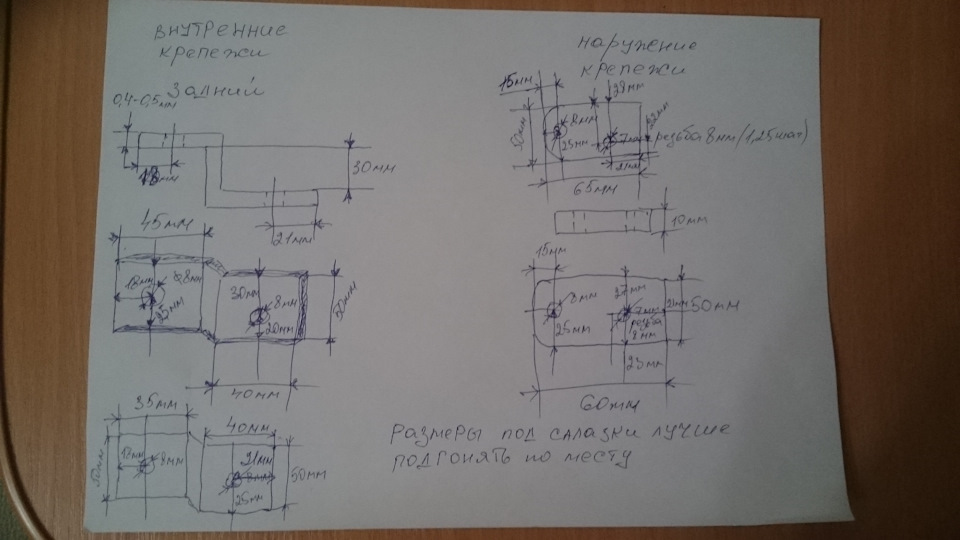 внутренние
крепежи
задний
0,4-0,5мм
18мм
30мм
21мм
45мм
18мм
8мм
25мм
30мм
8мм
20мм
50мм
40мм
35мм
8мм
50мм
40мм
21мм
8мм
25мм
50мм
наружение
крепежи
15мм
28мм
50мм
8мм
25мм
7мм
22мм
резьба 8мм (1,25шаг)
21мм
65мм
10мм
15мм
8мм
25мм
27мм
7мм
резьба
8мм
21мм
50мм
23мм
60мм
размеры под салазки лучше
подгонять по месту